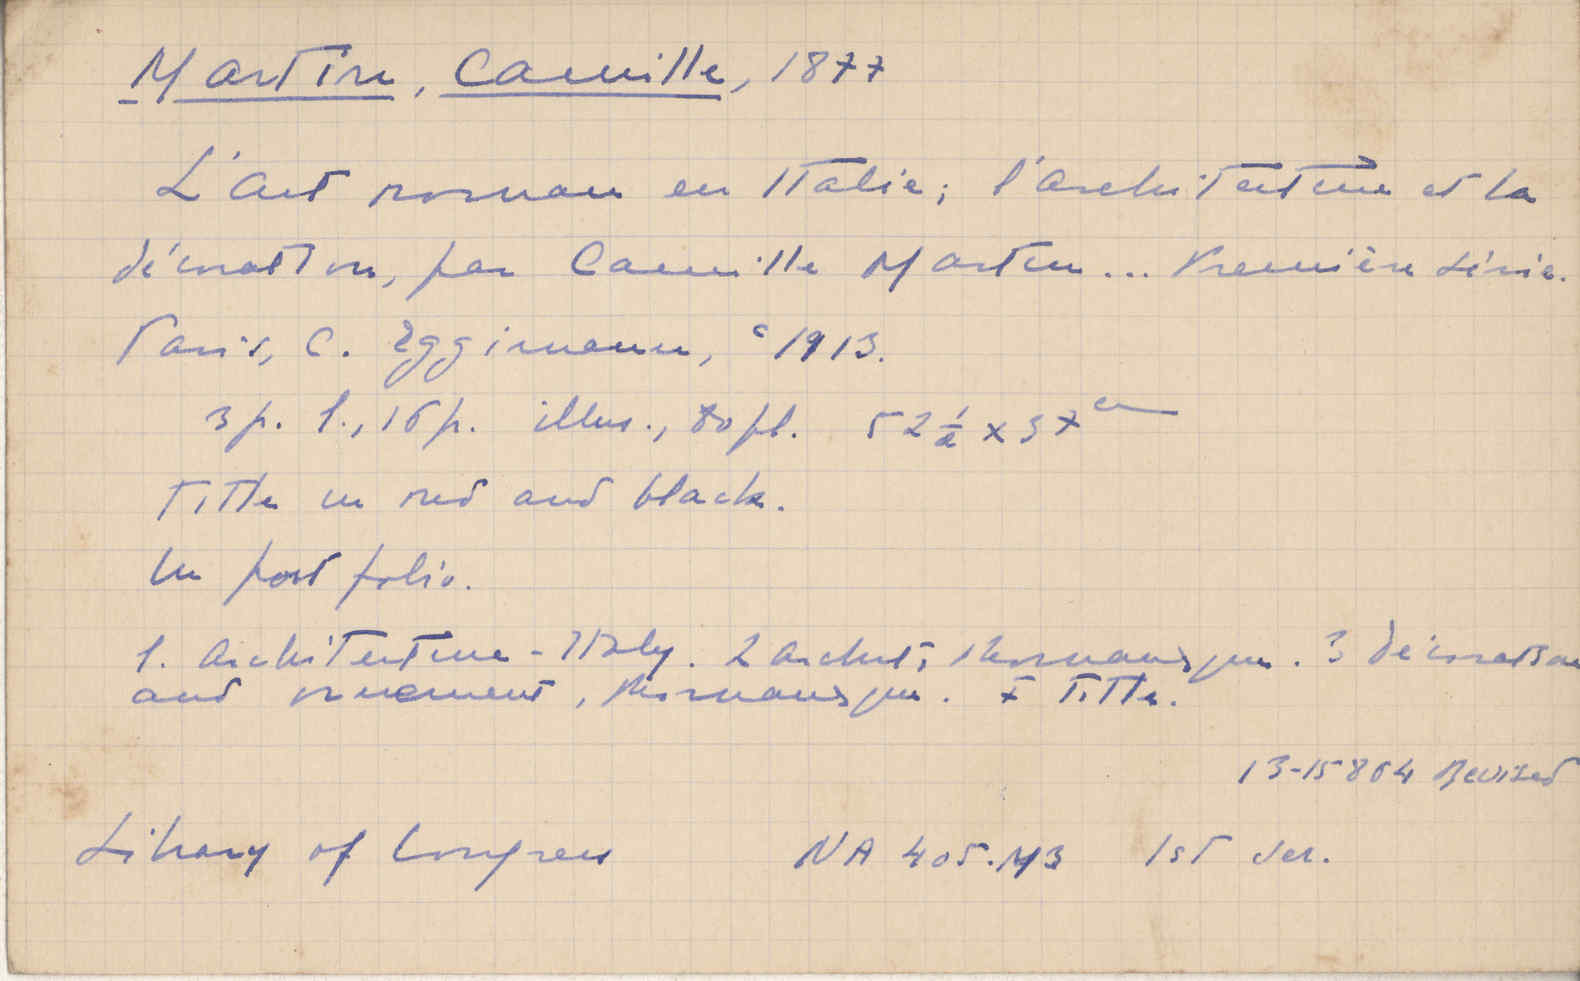 Martin, Camille, 1877
L'art roman en Italie; l'architecture et la
décoration, par Camille Martin... Première série.
Paris, C. Eggimann, c1913.
3 p. l., 16 p. illus., 80 pl. 52½ x 37 cm
Title in red and black.
In port folio.
1. Architecture - Italy. 2 archit; Romanesque. 3 décoration
and ornement, Romanesque. I Title.
13-15804 Revised
Library of Congress NA 405.M3 1st ser.